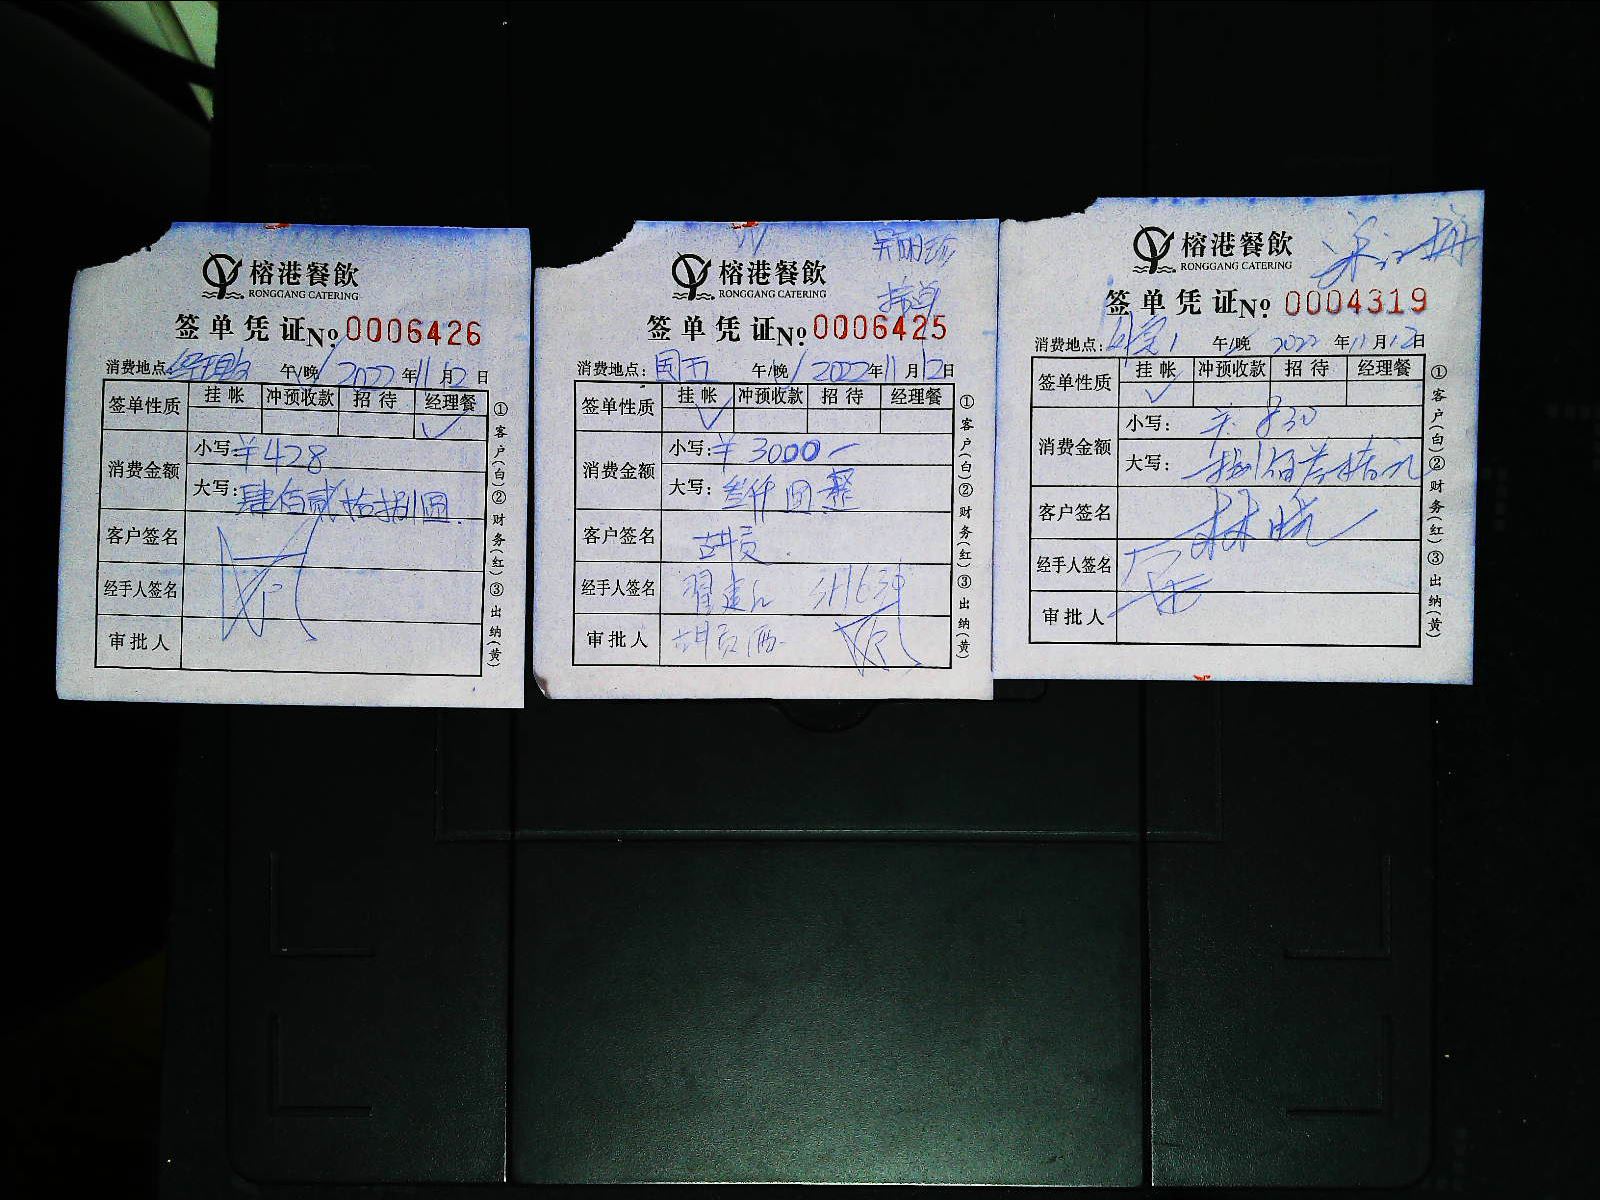 榕港餐飲
RONGGANG CATERING
签单凭证 No: 0006426
消费地点: 午/晚 2022年11月12日
签单性质 挂帐 冲预收款 招待 经理餐
✓
消费金额
小写: ¥428
大写: 肆佰贰拾捌圆
客户签名
经手人签名
审批人
①客户(白)②财务(红)③出纳(黄)
榕港餐飲
RONGGANG CATERING
签单凭证 No: 0006425
消费地点: 午/晚 2022年11月12日
签单性质 挂帐 冲预收款 招待 经理餐
✓
消费金额
小写: ¥3000-
大写: 叁仟圆整
客户签名
经手人签名
审批人
①客户(白)②财务(红)③出纳(黄)
榕港餐飲
RONGGANG CATERING
签单凭证 No: 0004319
消费地点: 午/晚 2022年11月12日
签单性质 挂帐 冲预收款 招待 经理餐
✓
消费金额
小写: ¥:830
大写: 捌佰叁拾元
客户签名 林晓
经手人签名
审批人
①客户(白)②财务(红)③出纳(黄)